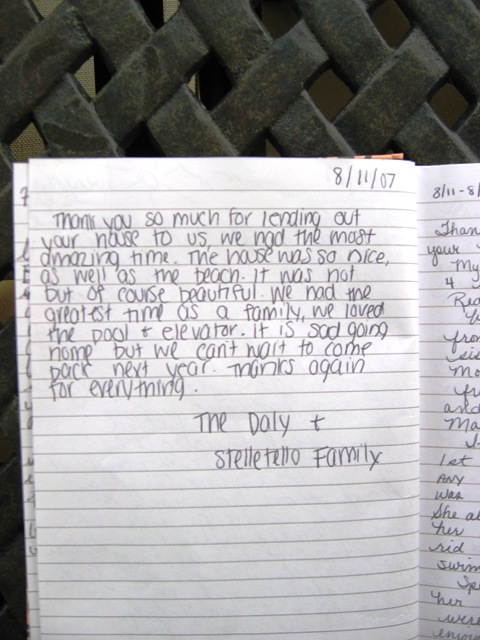 8/11/07
Thank you so much for lending out
your house to us, we had the most
amazing time. The house was so nice,
as well as the beach. It was hot
but of course beautiful. We had the
greatest time as a family, we loved
the pool + elevator. It is sad going
home but we can't wait to come
back next year. Thanks again
for everything.
The Daly +
Stelletello Family
8/11-8/
Than
your
My
4
Rea
fro
sis
Mo
fu
and
Ma
1st
ANY
was
She al
her
rid
swim
Spe
her
were
enjoy